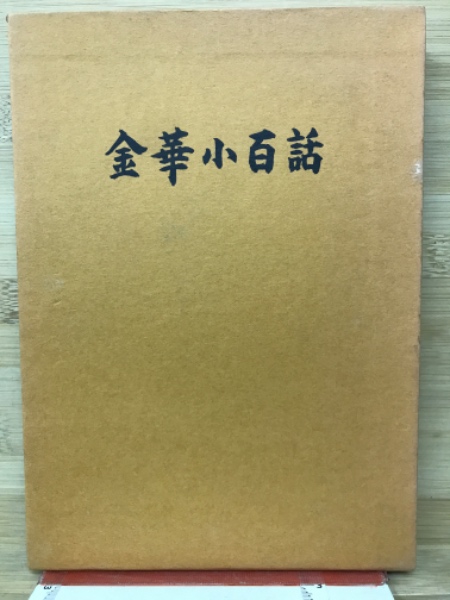 金華小百話